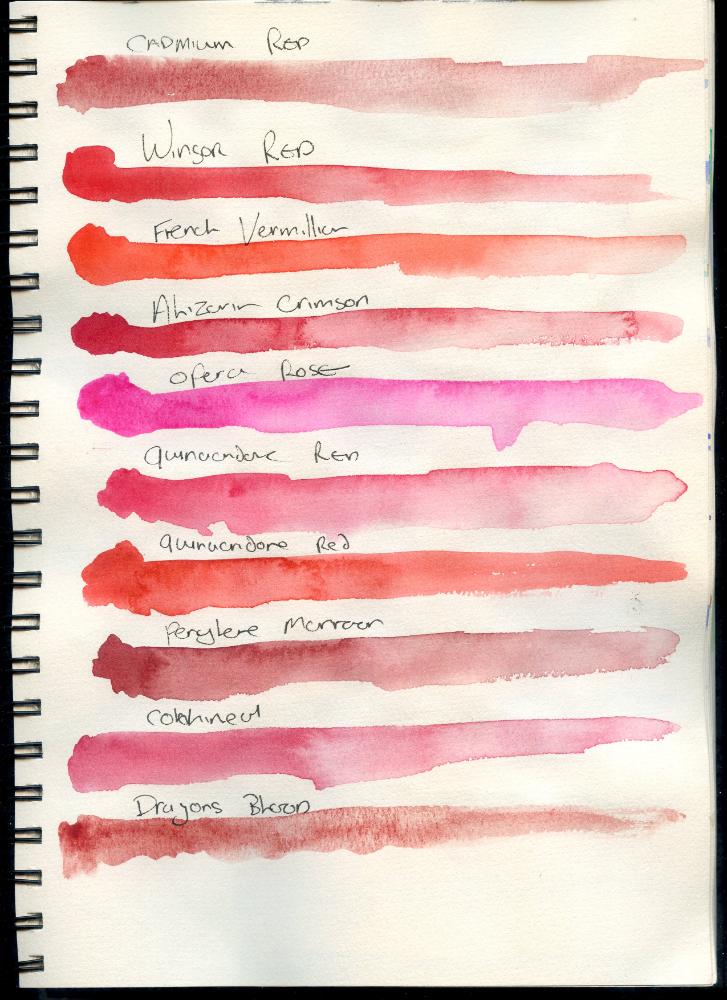 CADMIUM RED
Winsor RED
French Vermillion
Alizarin Crimson
Opera ROSE
Quinacridone RED
Quinacridone Red
Perylene Marroon
Cochineal
Dragons Blood